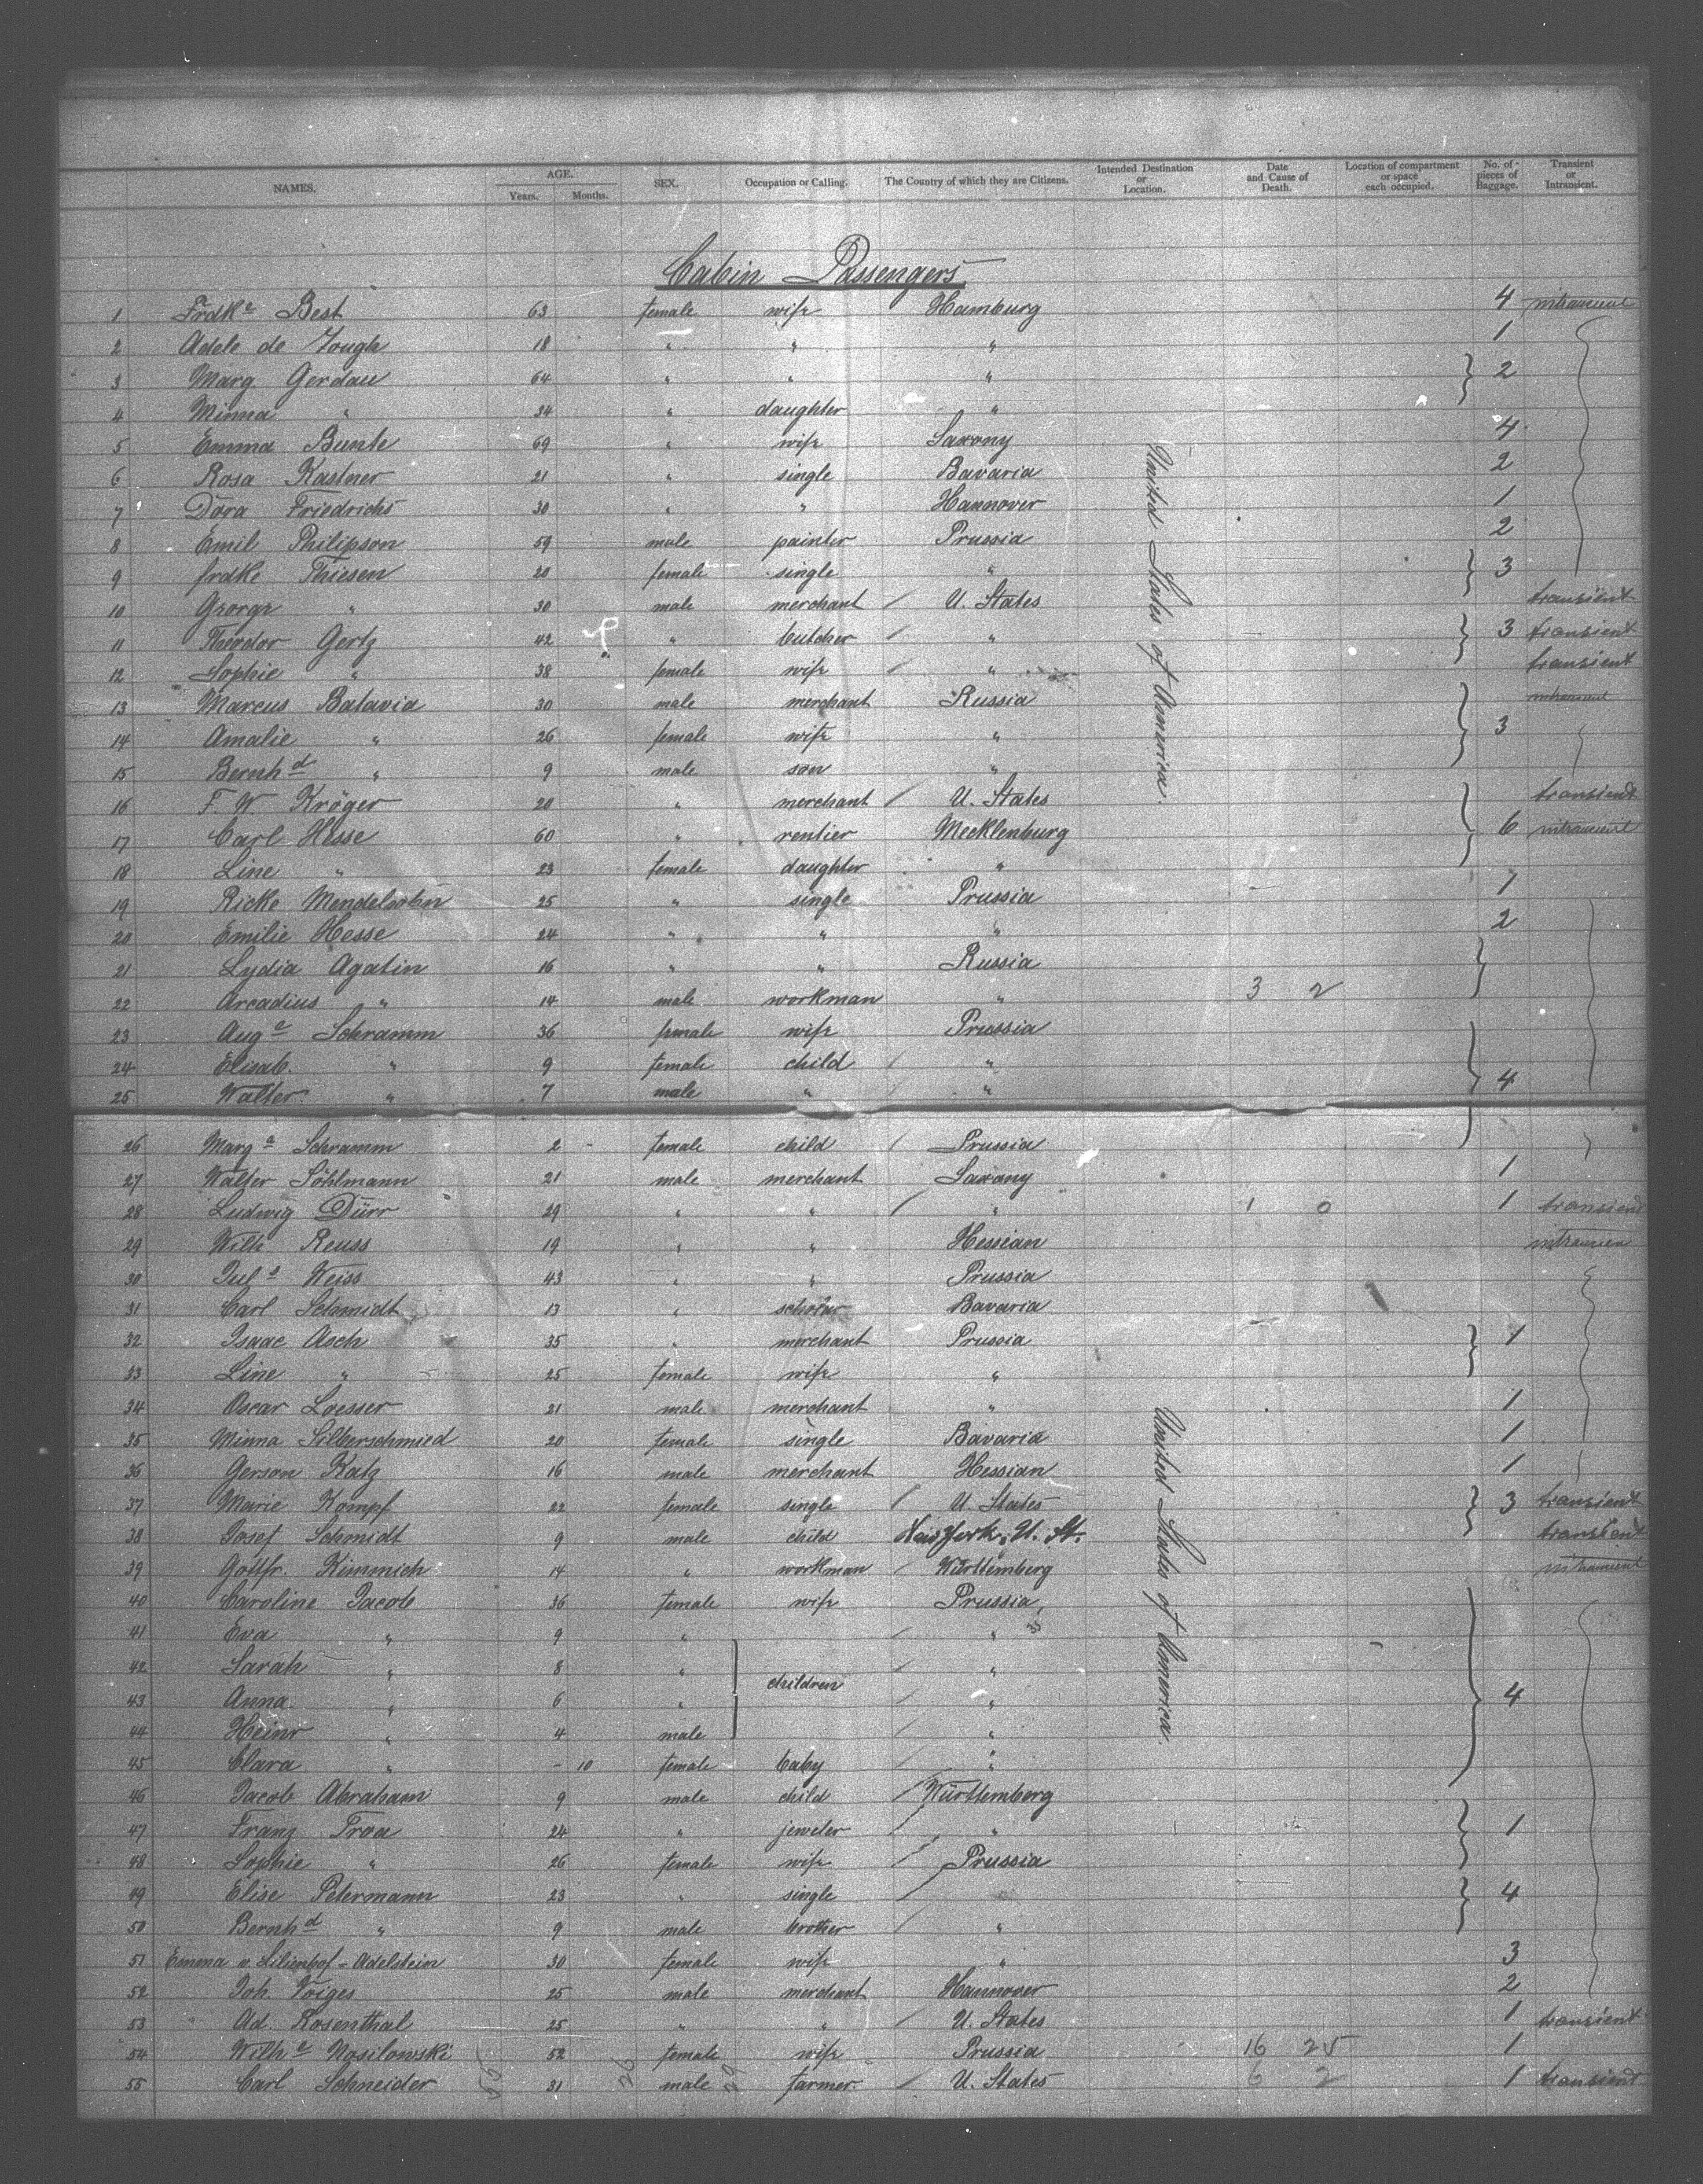 NAMES. AGE. Years. Months. SEX. Occupation or Calling. The Country of which they are Citizens. Intended Destination or Location. Date and Cause of Death. Location of compartment or space each occupied. No. of pieces of Baggage. Transient or Intransient.
Cabin Passengers
1 Frdke Best 63 female wife Hamburg 4 intransient
2 Adele de Jough 18 " " " 1
3 Marg. Gerdau 64 " " " 2
4 Minna " 34 " daughter "
5 Emma Bunte 69 " wife Saxony 4
6 Rosa Kastner 21 " single Bavaria 2
7 Dora Friedrichs 30 " " Hannover 1
8 Emil Philipson 59 male painter Prussia 2
9 Frdke Thiesen 20 female single " 3
10 George " 30 male merchant U. States transient
11 Theodor Gertz 42 " butcher " 3 transient
12 Sophie " 38 female wife " transient
13 Marcus Batavia 30 male merchant Russia intransient
14 Amalie " 26 female wife " 3
15 Bernhd " 9 male son "
16 F. W. Kröger 20 " merchant U. States transient
17 Carl Hesse 60 " rentier Mecklenburg 6 intransient
18 Line " 23 female daughter "
19 Ricke Mendelsohn 25 " single Prussia 1
20 Emilie Hesse 24 " " " 2
21 Lydia Agatin 16 " " Russia
22 Arcadius " 14 male workman " 3 2
23 Auge Schramm 36 female wife Prussia
24 Elisab. " 9 female child "
25 Walter " 7 male " " 4
26 Marga Schramm 2 - female child Prussia
27 Walter Söhlmann 21 male merchant Saxony 1
28 Ludwig Dürr 29 " " " 1 0 1 transient
29 Wilh Reuss 19 " " Hessian intransien
30 Juls Weiss 43 " " Prussia
31 Carl Schmidt 13 " scholar Bavaria
32 Isaac Asch 35 " merchant Prussia 1
33 Line " 25 female wife "
34 Oscar Loesser 21 male merchant " 1
35 Minna Silberschmied 20 female single Bavaria 1
36 Gerson Katz 16 male merchant Hessian 1
37 Marie Kompf 22 female single U. States 3 transient
38 Josef Schmidt 9 male child New York, U. St. transient
39 Gottfr. Kimmich 14 " workman Württemberg intransient
40 Caroline Jacob 36 female wife Prussia
41 Eva " 9 " "
42 Sarah " 8 " children "
43 Anna " 6 " " 4
44 Heinr " 4 male "
45 Clara " - 10 female baby "
46 Jacob Abraham 9 male child Württemberg
47 Franz Troa 24 " jeweler " 1
48 Sophie " 26 female wife Prussia
49 Elise Petermann 23 " single 4
50 Bernhd " 9 male brother "
51 Emma v. Lilienhof-Adelstein 30 female wife " 3
52 Joh. Voiges 25 male merchant Hannover 2
53 Ad. Rosenthal 25 " " U. States 1 transient
54 Wilhe Nosilowski 52 female wife Prussia 16 25 1
55 Carl Schneider 31 male farmer. U. States 6 2 1 transient
United States of America.
United States of America.
55 26 29